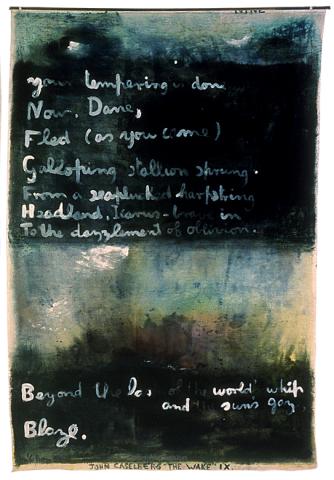 your tempering is done
Now, Dane,
Fled (as you came)
Galloping stallion sprung
From a seaplucked harpstring
Headland, Icarus-brave in
To the dazzlement of oblivion.
Beyond the of the world whip
and the sun's gaze,
Blaze.
JOHN CASELBERG "THE WAKE" IX.